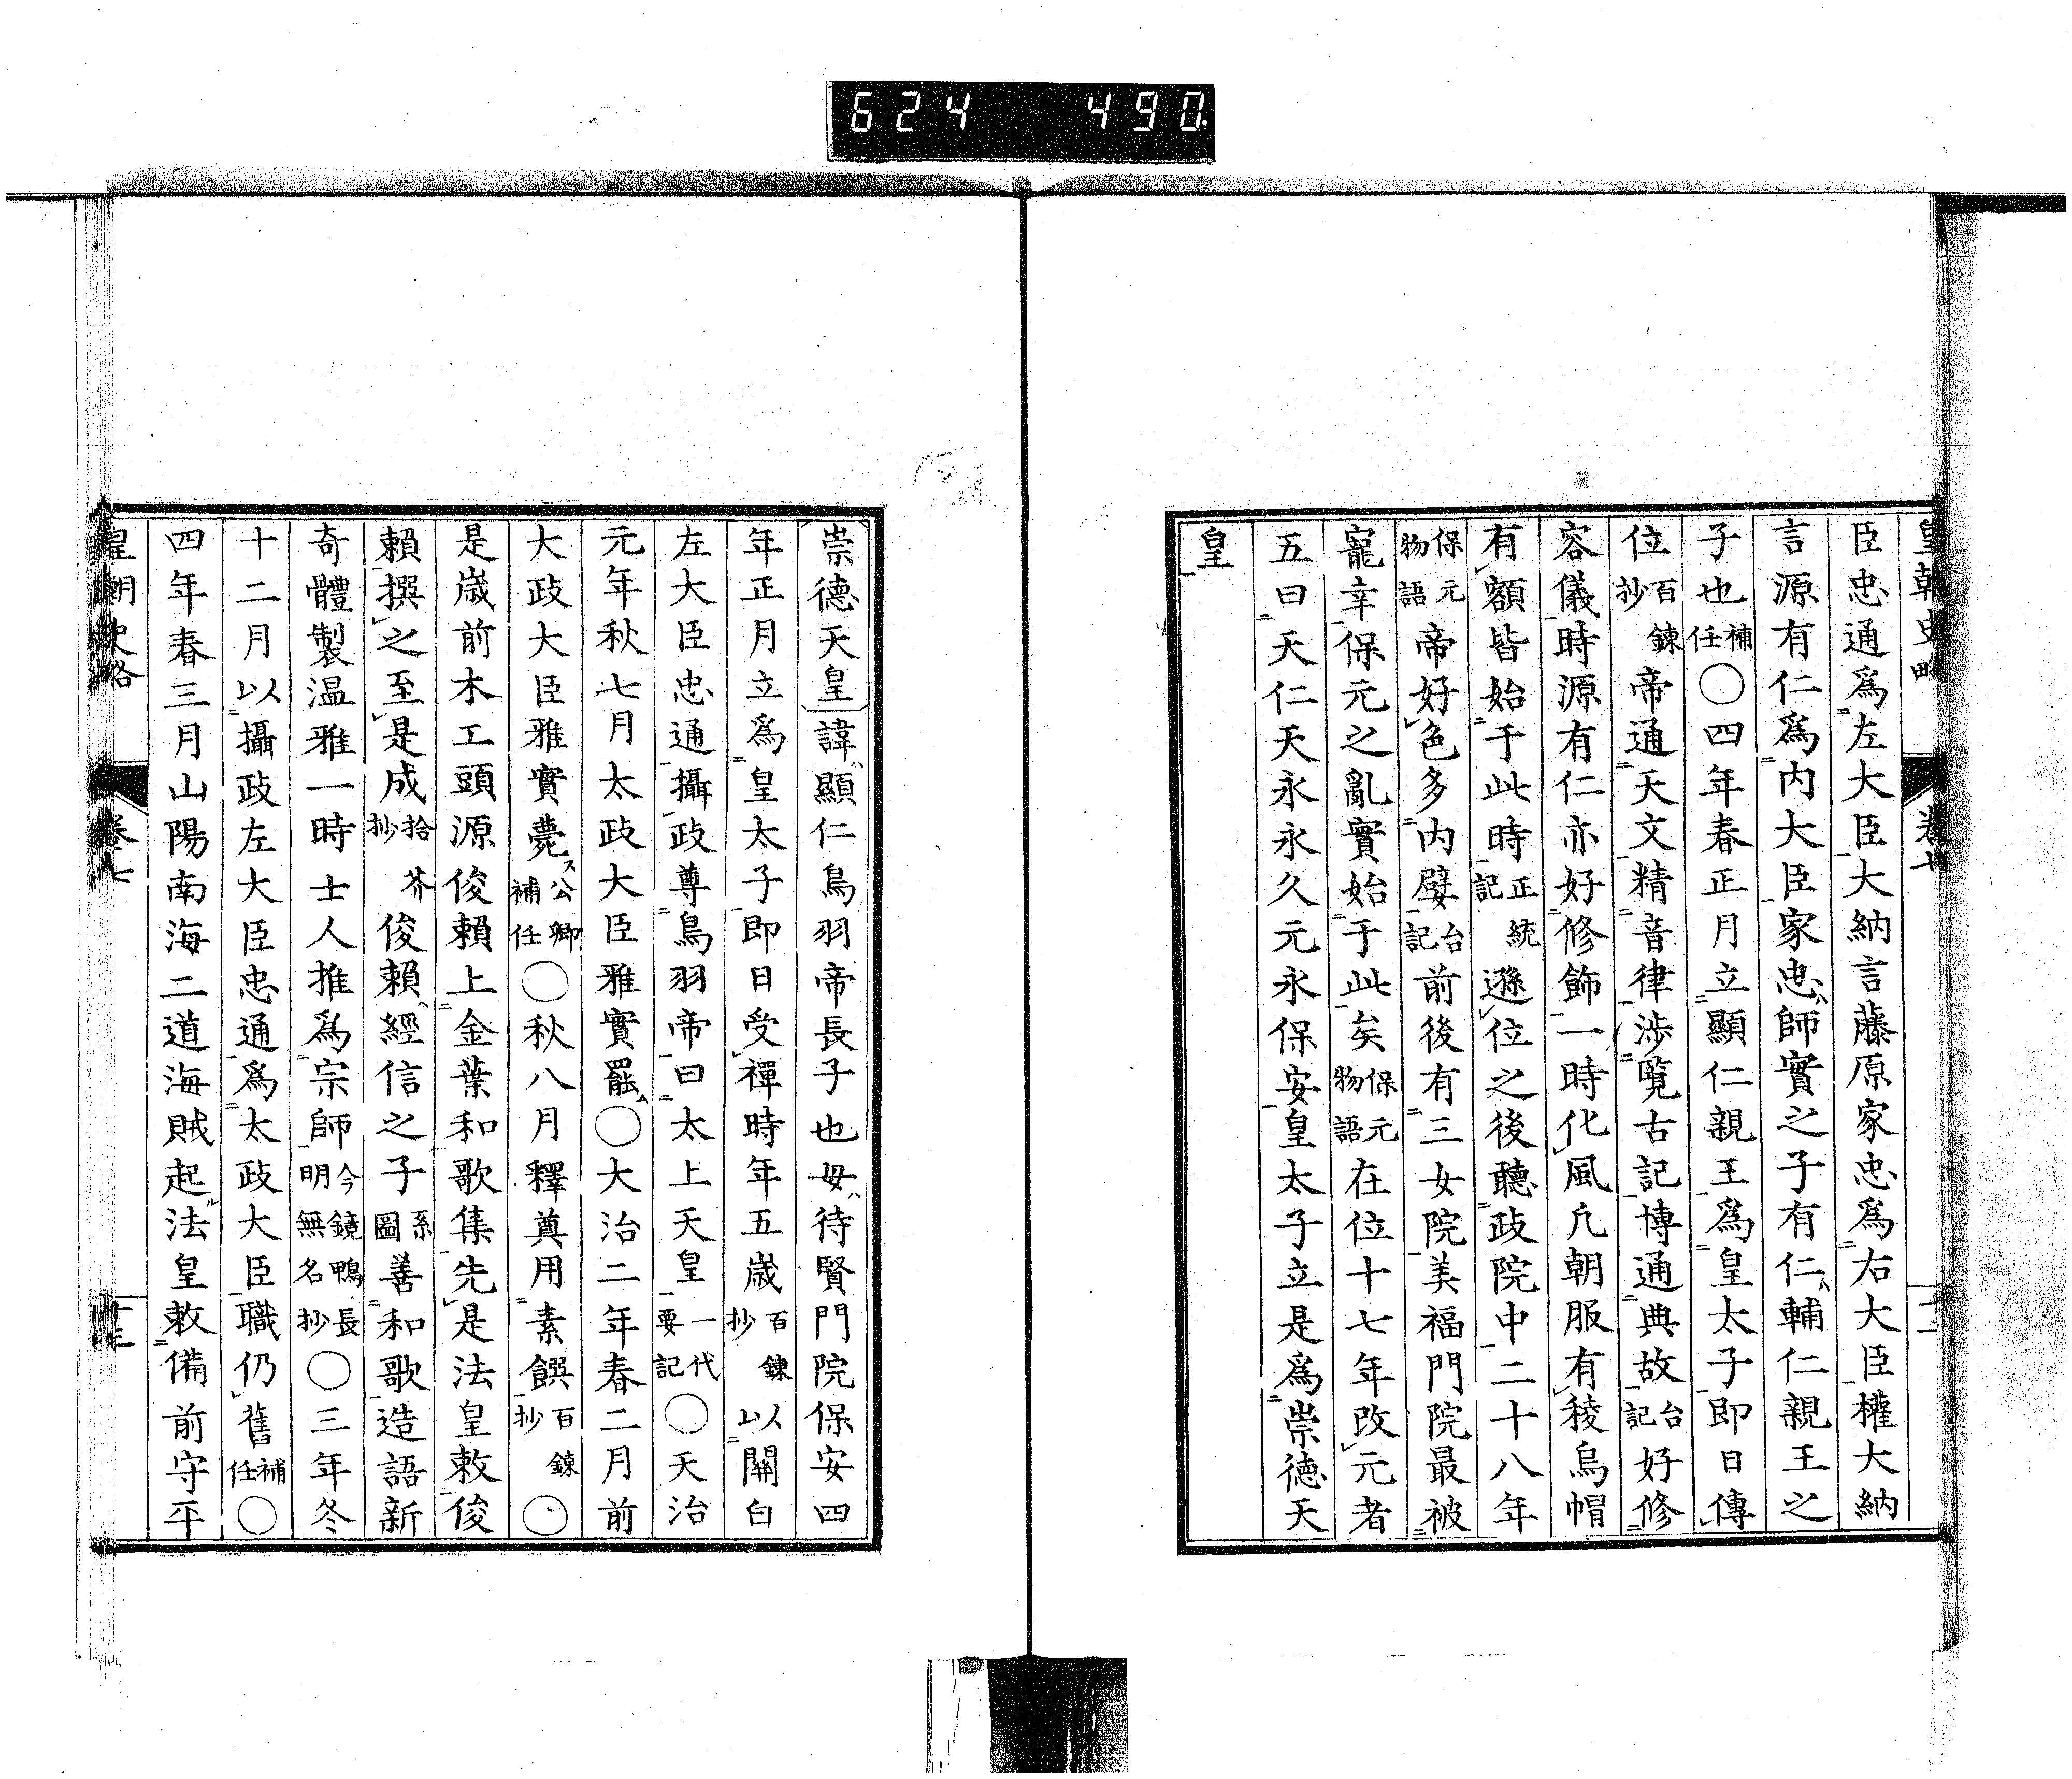 624 490
皇朝史略 卷七 十二
臣忠通爲左大臣大納言藤原家忠爲右大臣權大納
言源有仁爲內大臣家忠師實之子有仁輔仁親王之
子也補任〇四年春正月立顯仁親王爲皇太子卽日傳
位百鍊抄帝通天文精音律涉覽古記博通典故台記好修
容儀時源有仁亦好修飾一時化風凡朝服有稜烏帽
有額皆始于此時正統記遜位之後聽政院中二十八年
保元物語帝好色多內嬖台記前後有三女院美福門院最被
寵幸保元之亂實始于此矣保元物語在位十七年改元者
五曰天仁天永永久元永保安皇太子立是爲崇德天
皇
崇德天皇諱顯仁鳥羽帝長子也母待賢門院保安四
年正月立爲皇太子卽日受禪時年五歲百鍊抄以關白
左大臣忠通攝政尊鳥羽帝曰太上天皇一代要記〇天治
元年秋七月太政大臣雅實罷〇大治二年春二月前
大政大臣雅實薨公卿補任〇秋八月釋奠用素饌百鍊抄〇
是歲前木工頭源俊賴上金葉和歌集先是法皇敕俊
賴撰之至是成拾芥抄俊賴經信之子系圖善和歌造語新
奇體製温雅一時士人推爲宗師今鏡鴨長明無名抄〇三年冬
十二月以攝政左大臣忠通爲太政大臣職仍舊補任〇
四年春三月山陽南海二道海賊起法皇敕備前守平
皇朝史略 卷七 十三